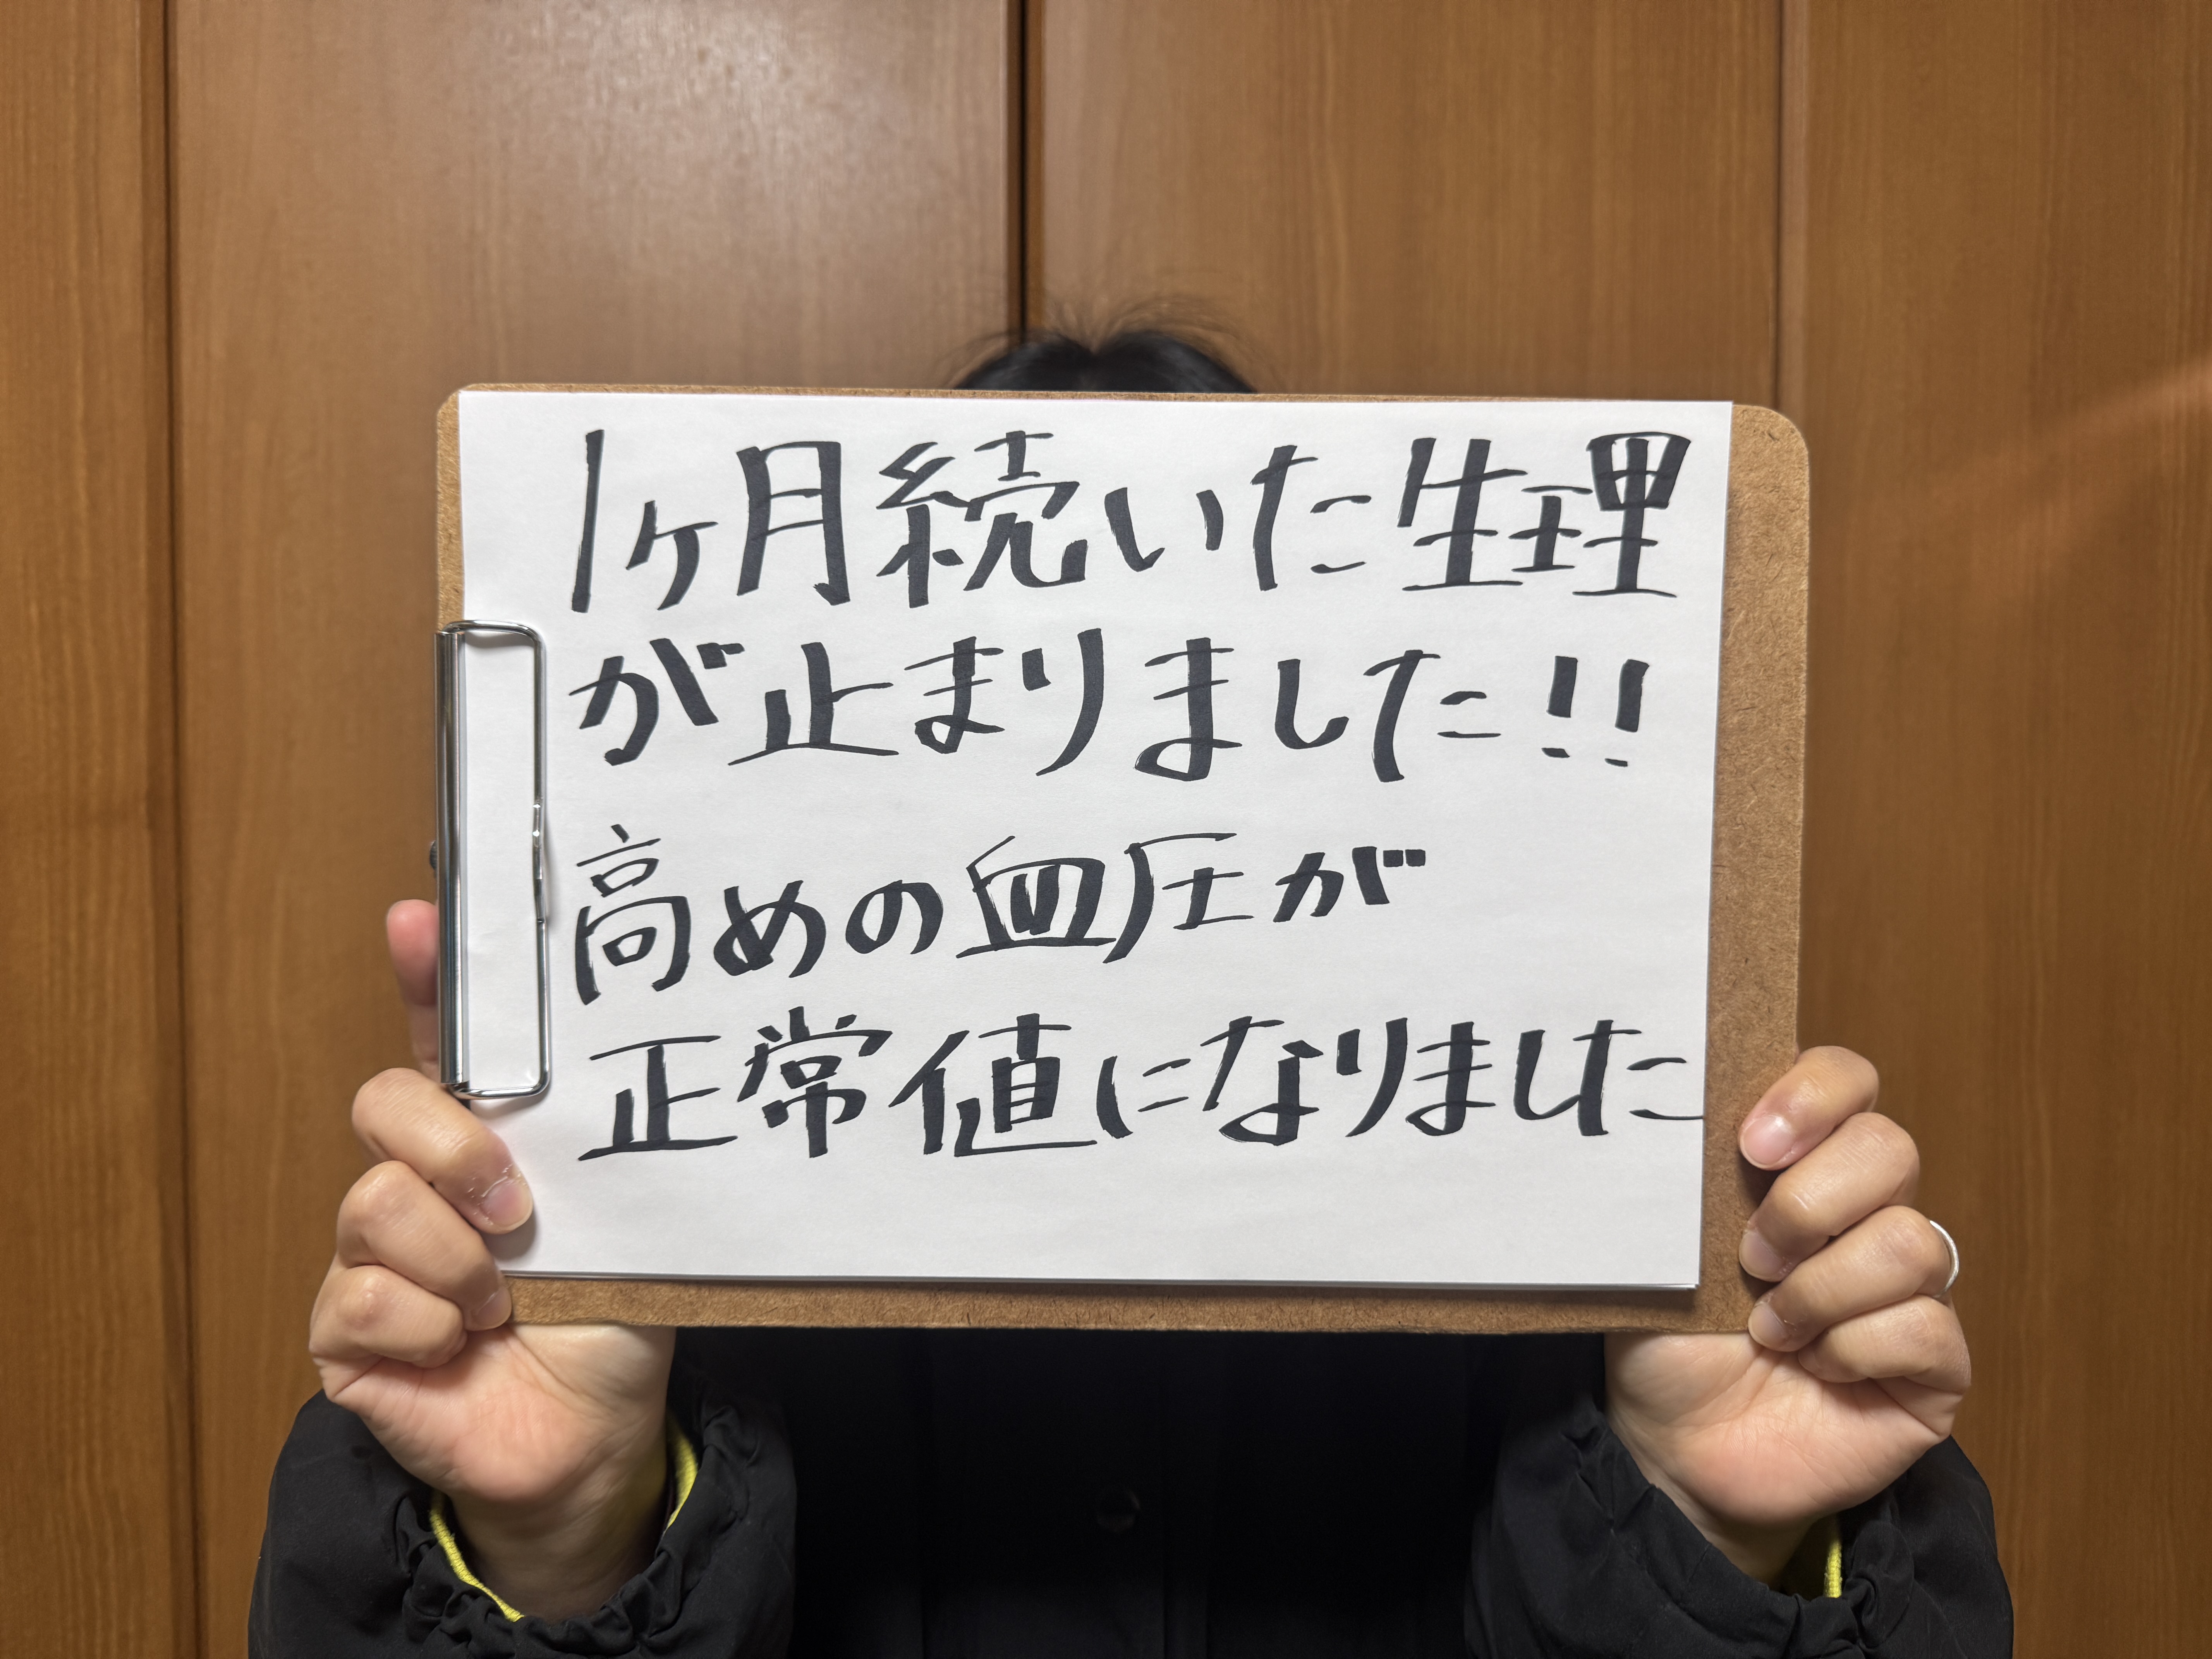 1ヶ月続いた生理
が止まりました!!
高めの血圧が
正常値になりました